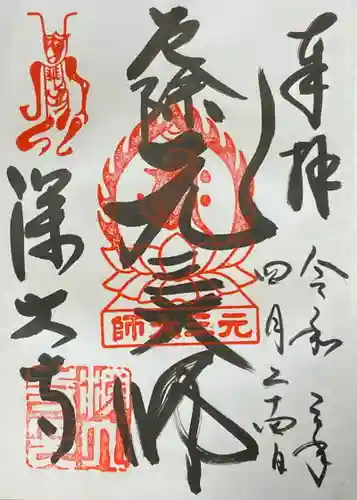 奉拝
令和三年
四月二十四日
厄除元三大師
元三大師
深大寺